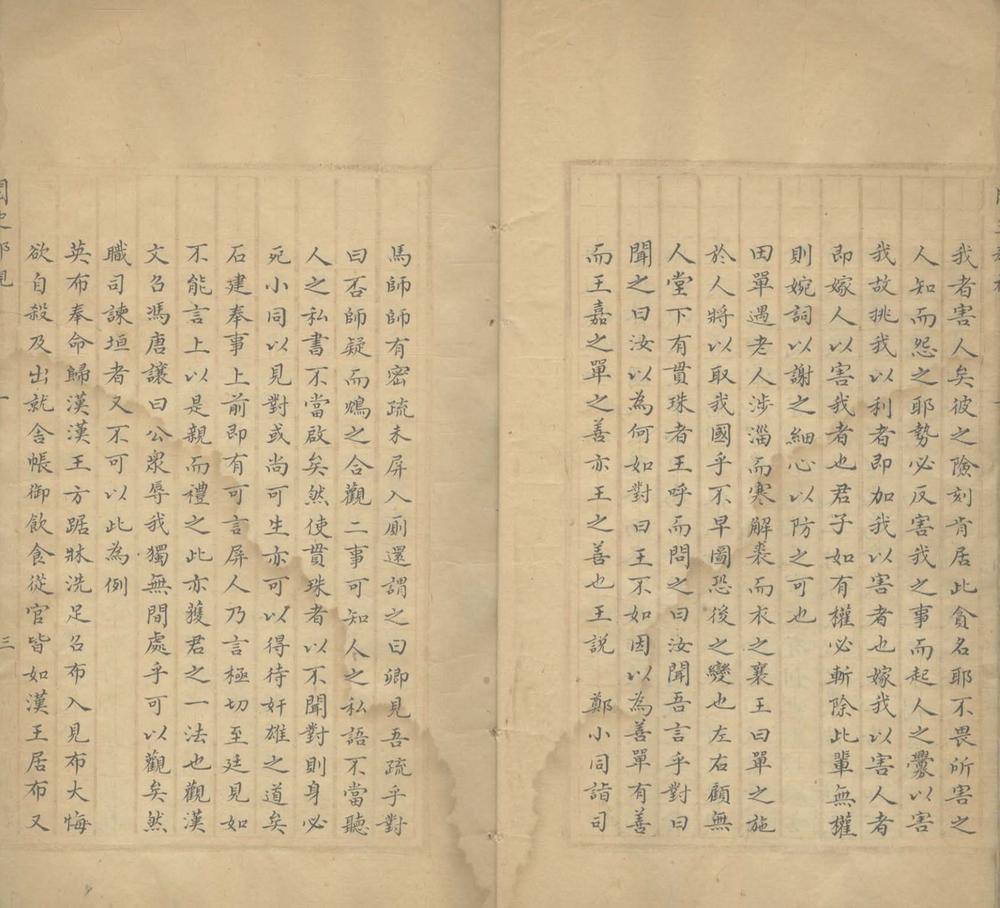 我者害人矣彼之險刻肯居此貪名耶不畏所害之
人知而怨之耶勢必反害我之事而起人之釁以害
我故挑我以利者即加我以害者也嫁我以害人者
即嫁人以害我者也君子如有權必斬除此輩無權
則婉詞以謝之細心以防之可也
田單遇老人涉淄而寒解裘而衣之襄王曰單之施
於人將以取我國乎不早圖恐後之變也左右顧無
人堂下有貫珠者王呼而問之曰汝聞吾言乎對曰
聞之曰汝以為何如對曰王不如因以為善單有善
而王嘉之單之善亦王之善也王說　鄭小同詣司
馬師師有密疏未屏入廁還謂之曰卿見吾疏乎對
曰否師疑而鴆之合觀二事可知人之私語不當聽
人之私書不當啟矣然使貫珠者以不聞對則身必
死小同以見對或尚可生亦可以得待奸雄之道矣
石建奉事上前即有可言屏人乃言極切至廷見如
不能言上以是親而禮之此亦獲君之一法也觀漢
文召馮唐讓曰公眾辱我獨無間處乎可以觀矣然
職司諫垣者又不可以此為例
英布奉命歸漢漢王方踞牀洗足召布入見布大悔
欲自殺及出就舍帳御飲食從官皆如漢王居布又
三